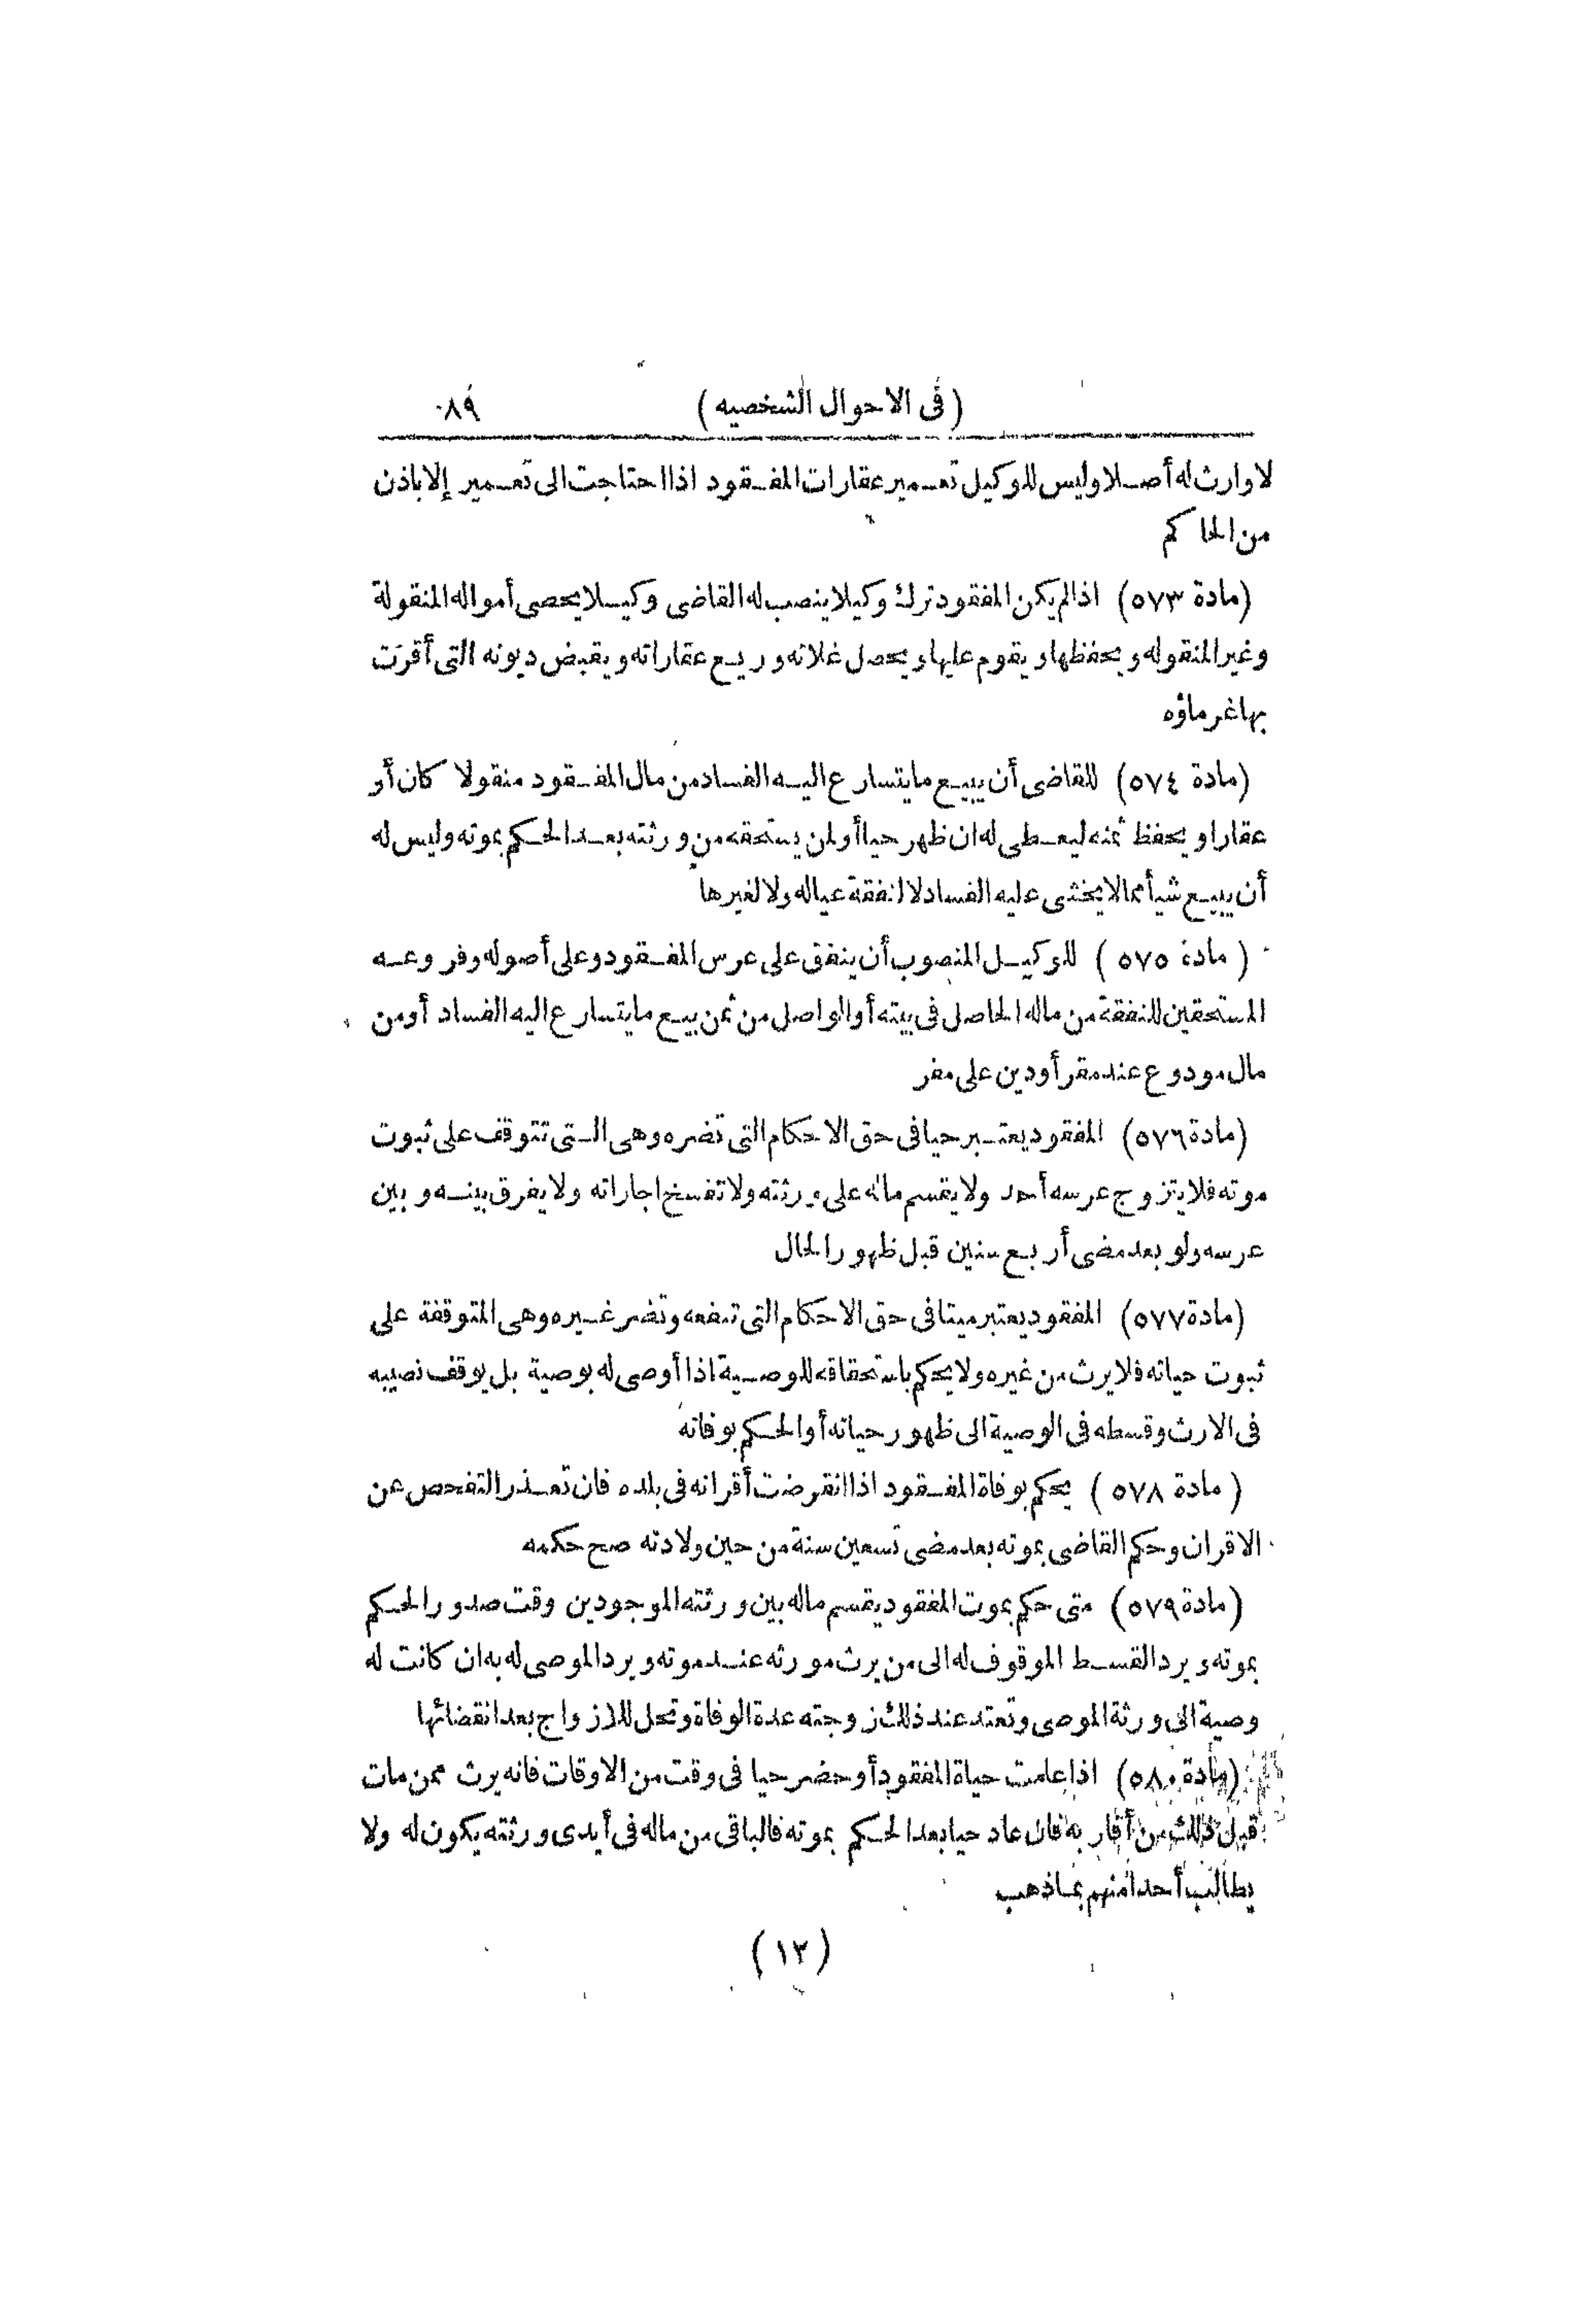 (فى الاحوال الشخصيه) ٨٩
لا وارث له أصلا وليس للوكيل تعمير عقارات المفقود اذا احتاجت الى تعمير إلا باذن
من الحاكم
(مادة ٥٧٣) اذا لم يكن المفقود ترك وكيلا ينصب له القاضى وكيلا يحصى أمواله المنقولة
وغير المنقوله ويحفظها ويقوم عليها ويحصل غلاته وريع عقاراته ويقبض ديونه التى أقرت
بها غرماؤه
(مادة ٥٧٤) للقاضى أن يبيع ما يتسارع اليه الفساد من مال المفقود منقولا كان أو
عقارا ويحفظ ثمنه ليعطى له ان ظهر حيا أو لمن يستحقه من ورثته بعد الحكم بموته وليس له
أن يبيع شيأ مما لا يخشى عليه الفساد لا لنفقة عياله ولا لغيرها
(مادة ٥٧٥) للوكيل المنصوب أن ينفق على عرس المفقود وعلى أصوله وفروعه
المستحقين للنفقة من ماله الحاصل فى بيته أو الواصل من ثمن بيع ما يتسارع اليه الفساد أو من
مال مودوع عند مقر أو دين على مقر
(مادة ٥٧٦) المفقود يعتبر حيا فى حق الاحكام التى تضره وهى التى تتوقف على ثبوت
موته فلا يتزوج عرسه أحد ولا يقسم ماله على ورثته ولا تفسخ اجاراته ولا يفرق بينه وبين
عرسه ولو بعد مضى أربع سنين قبل ظهور الحال
(مادة ٥٧٧) المفقود يعتبر ميتا فى حق الاحكام التى تنفعه وتضر غيره وهى المتوقفة على
ثبوت حياته فلا يرث من غيره ولا يحكم باستحقاقه للوصية اذا أوصى له بوصية بل يوقف نصيبه
فى الارث وقسطه فى الوصية الى ظهور حياته أو الحكم بوفاته
(مادة ٥٧٨) يحكم بوفاة المفقود اذا انقرضت أقرانه فى بلده فان تعذر التفحص عن
الاقران وحكم القاضى بموته بعد مضى تسعين سنة من حين ولادته صح حكمه
(مادة ٥٧٩) متى حكم بموت المفقود يقسم ماله بين ورثته الموجودين وقت صدور الحكم
بموته ويرد القسط الموقوف له الى من يرث مورثه عند موته ويرد الموصى له به ان كانت له
وصية الى ورثة الموصى وتعتد عند ذلك زوجته عدة الوفاة وتحل للازواج بعد انقضائها
(مادة ٥٨٠) اذا علمت حياة المفقود أو حضر حيا فى وقت من الاوقات فانه يرث ممن مات
قبل ذلك من أقاربه فان عاد حيا بعد الحكم بموته فالباقى من ماله فى أيدى ورثته يكون له ولا
يطالب أحدا منهم بما ذهب
(١٢)